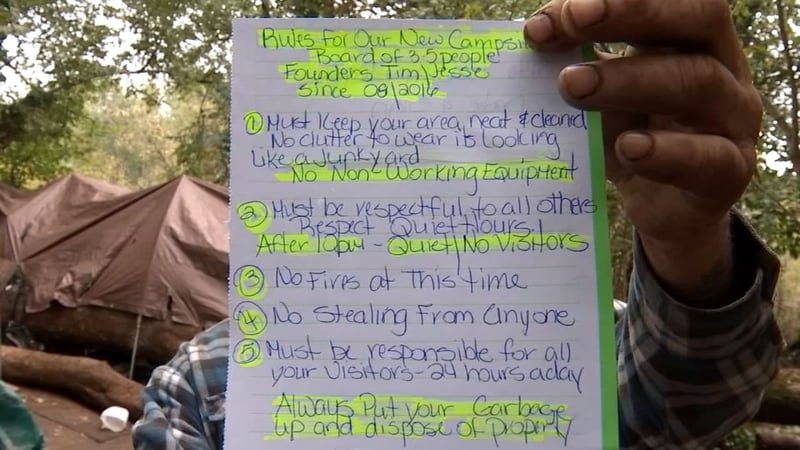 Rules for Our New
Board of 3-5 people
Founders Tim/Jesse
since 08/2016
1 Must Keep your area, neat & cleaned
No clutter to wear its Looking
Like a Junkyard
No Non-Working Equipment
2 Must be respectful to all others
Respect Quiet Hours!
After 10pm - Quiet/No Visitors
3 No Fires at This time
4 No Stealing From anyone
5 Must be responsible for all
your Visitors - 24 hours a day
Always Put your Garbage
up and dispose of Properly